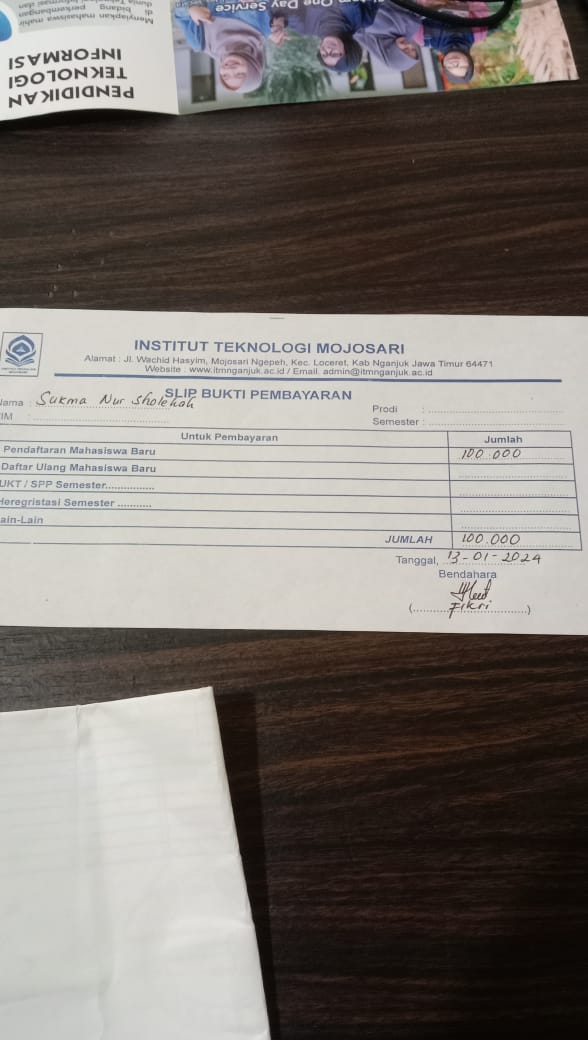 One Day Service
PENDIDIKAN
TEKNOLOGI
INFORMASI
Menyiapkan mahasiswa mahir
di bidang perkembangan
INSTITUT TEKNOLOGI MOJOSARI
Alamat : Jl. Wachid Hasyim, Mojosari Ngepeh, Kec. Loceret, Kab Nganjuk Jawa Timur 64471
Website : www.itmnganjuk.ac.id / Email. admin@itmnganjuk.ac.id
SLIP BUKTI PEMBAYARAN
ama : Sukma Nur Sholekah
IM :
Prodi :
Semester :
Untuk Pembayaran Jumlah
Pendaftaran Mahasiswa Baru 100.000
Daftar Ulang Mahasiswa Baru
UKT / SPP Semester................
Heregristasi Semester ...........
ain-Lain
JUMLAH 100.000
Tanggal, 13-01-2024
Bendahara
(Fikri)